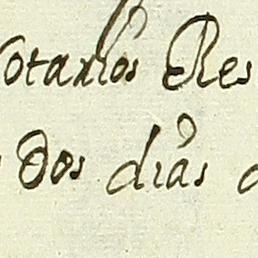 otarios Res
Dos dias